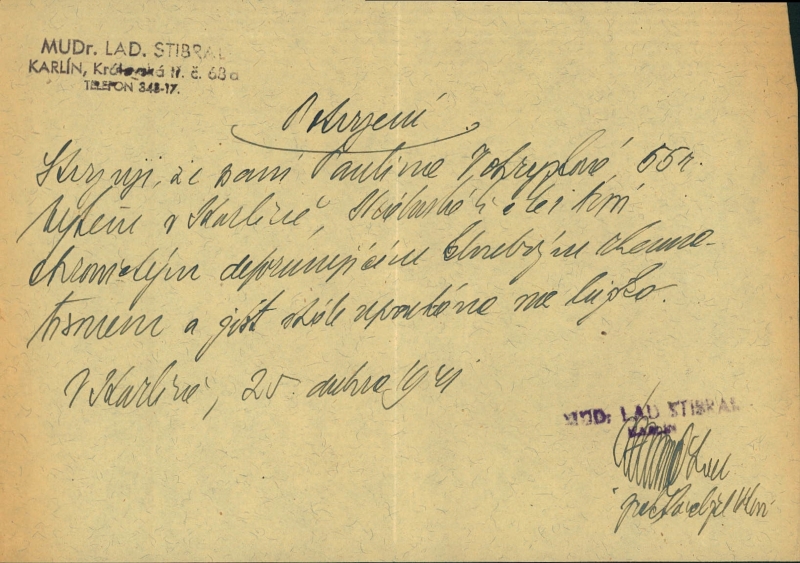 MUDr. LAD. STIBRAL
KARLÍN, Královská tř. č. 68a
TELEFON 348-17.
Potvrzení
Stvrzuji, že paní Paulina 55 r.
bytem v Karlíně, trpí
chronickým deformujícím kloubovým rheuma-
tismem a jest stále upoutána na lůžko.
V Karlíně, 25. dubna 1941
MUDr. LAD STIBRAL
KARLÍN